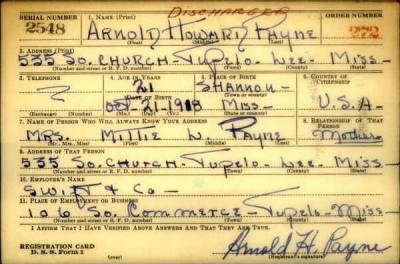 DISCHARGED
SERIAL NUMBER 1. NAME (Print) ORDER NUMBER
2548 ARNOLD HOWARD PAYNE
(First) (Middle) (Last)
2. ADDRESS (Print)
535 SO. CHURCH - TUPELO - LEE - MISS -
(Number and street or R. F. D. number) (Town) (County) (State)
3. TELEPHONE 4. AGE IN YEARS 5. PLACE OF BIRTH 6. COUNTRY OF CITIZENSHIP
21 SHANNON
DATE OF BIRTH (Town or county)
OCT-21-1918 MISS - U.S.A-
(Mo.) (Day) (Yr.) (State or country)
7. NAME OF PERSON WHO WILL ALWAYS KNOW YOUR ADDRESS 8. RELATIONSHIP OF THAT PERSON
MRS. MITTIE W. PAYNE MOTHER
(Mr., Mrs., Miss) (First) (Middle) (Last)
9. ADDRESS OF THAT PERSON
535 SO. CHURCH - TUPELO - LEE - MISS -
(Number and street or R. F. D. number) (Town) (County) (State)
10. EMPLOYER'S NAME
SWIFT & CO -
11. PLACE OF EMPLOYMENT OR BUSINESS
106 SO. COMMERCE - TUPELO - MISS -
(Number and street or R. F. D. number) (Town) (County) (State)
I AFFIRM THAT I HAVE VERIFIED ABOVE ANSWERS AND THAT THEY ARE TRUE.
REGISTRATION CARD
D. S. S. Form 1
Arnold H. Payne
(Registrant's signature)